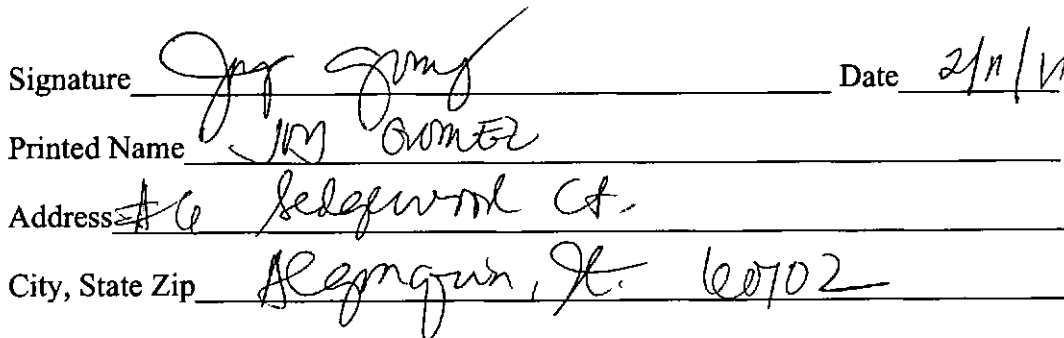 Signature Joy Gomez Date 2/11/
Printed Name JOY GOMEZ
Address #6 Sedgewood Ct.
City, State Zip Algonquin, IL. 60102